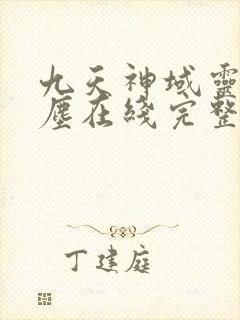 九天神域靈
塵在綫完整
丁建庭